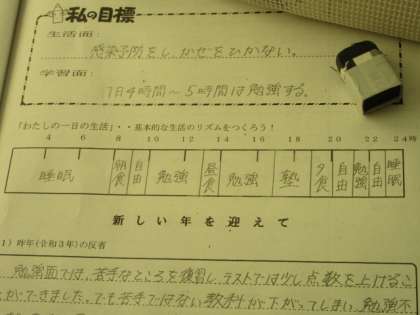 私の目標
生活面:
感染予防をし、かぜをひかない。
学習面:
1日4時間～5時間は勉強する。
「わたしの一日の生活」・・基本的な生活のリズムをつくろう!
4 6 8 10 12 14 16 18 20 22 24時
睡眠 朝食 自由 勉強 昼食 勉強 塾 夕食 自由 勉強 自由 睡眠
新しい年を迎えて
1) 昨年(令和3年)の反省
勉強面では、苦手なところを復習し、テストでは少し点数を上げるこ
とができました。でも苦手ではない教科が下がってしまい、勉強不